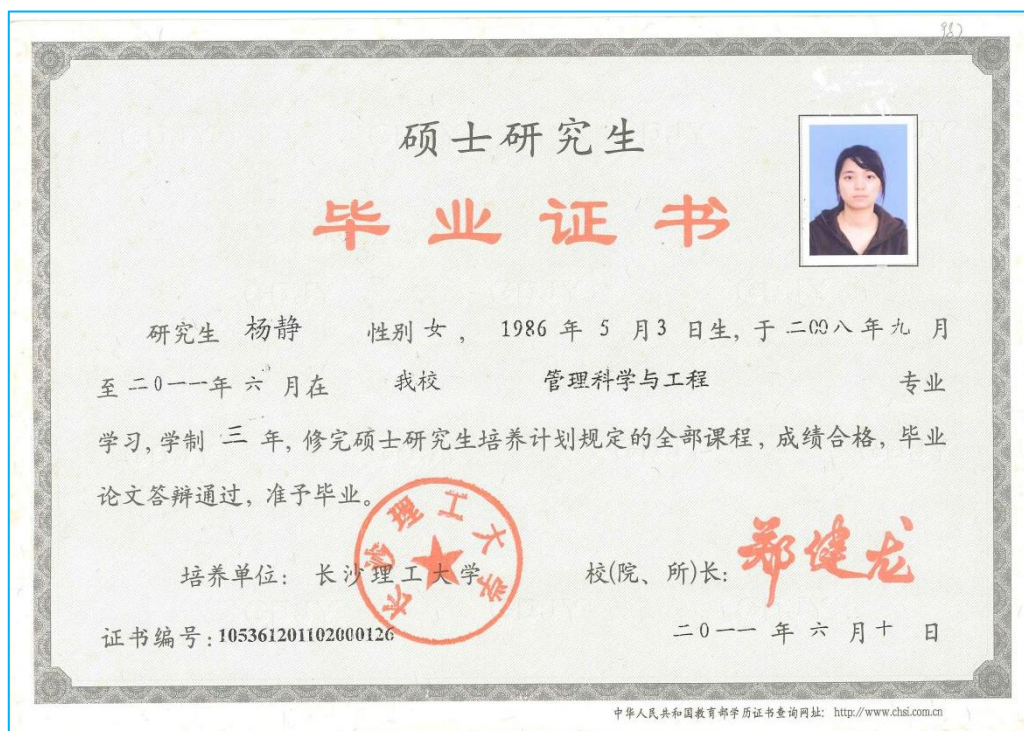 硕士研究生
毕业证书
研究生 杨静 性别 女 , 1986 年 5 月 3 日生, 于 二00八 年 九 月
至 二0一一年 六 月在 我校 管理科学与工程 专业
学习, 学制 三 年, 修完硕士研究生培养计划规定的全部课程, 成绩合格, 毕业
论文答辩通过, 准予毕业。
长沙理工大学
培养单位: 长沙理工大学 校(院、所)长: 郑健龙
证书编号: 105361201102000126 二0一一 年 六 月 十 日
中华人民共和国教育部学历证书查询网址: http://www.chsi.com.cn